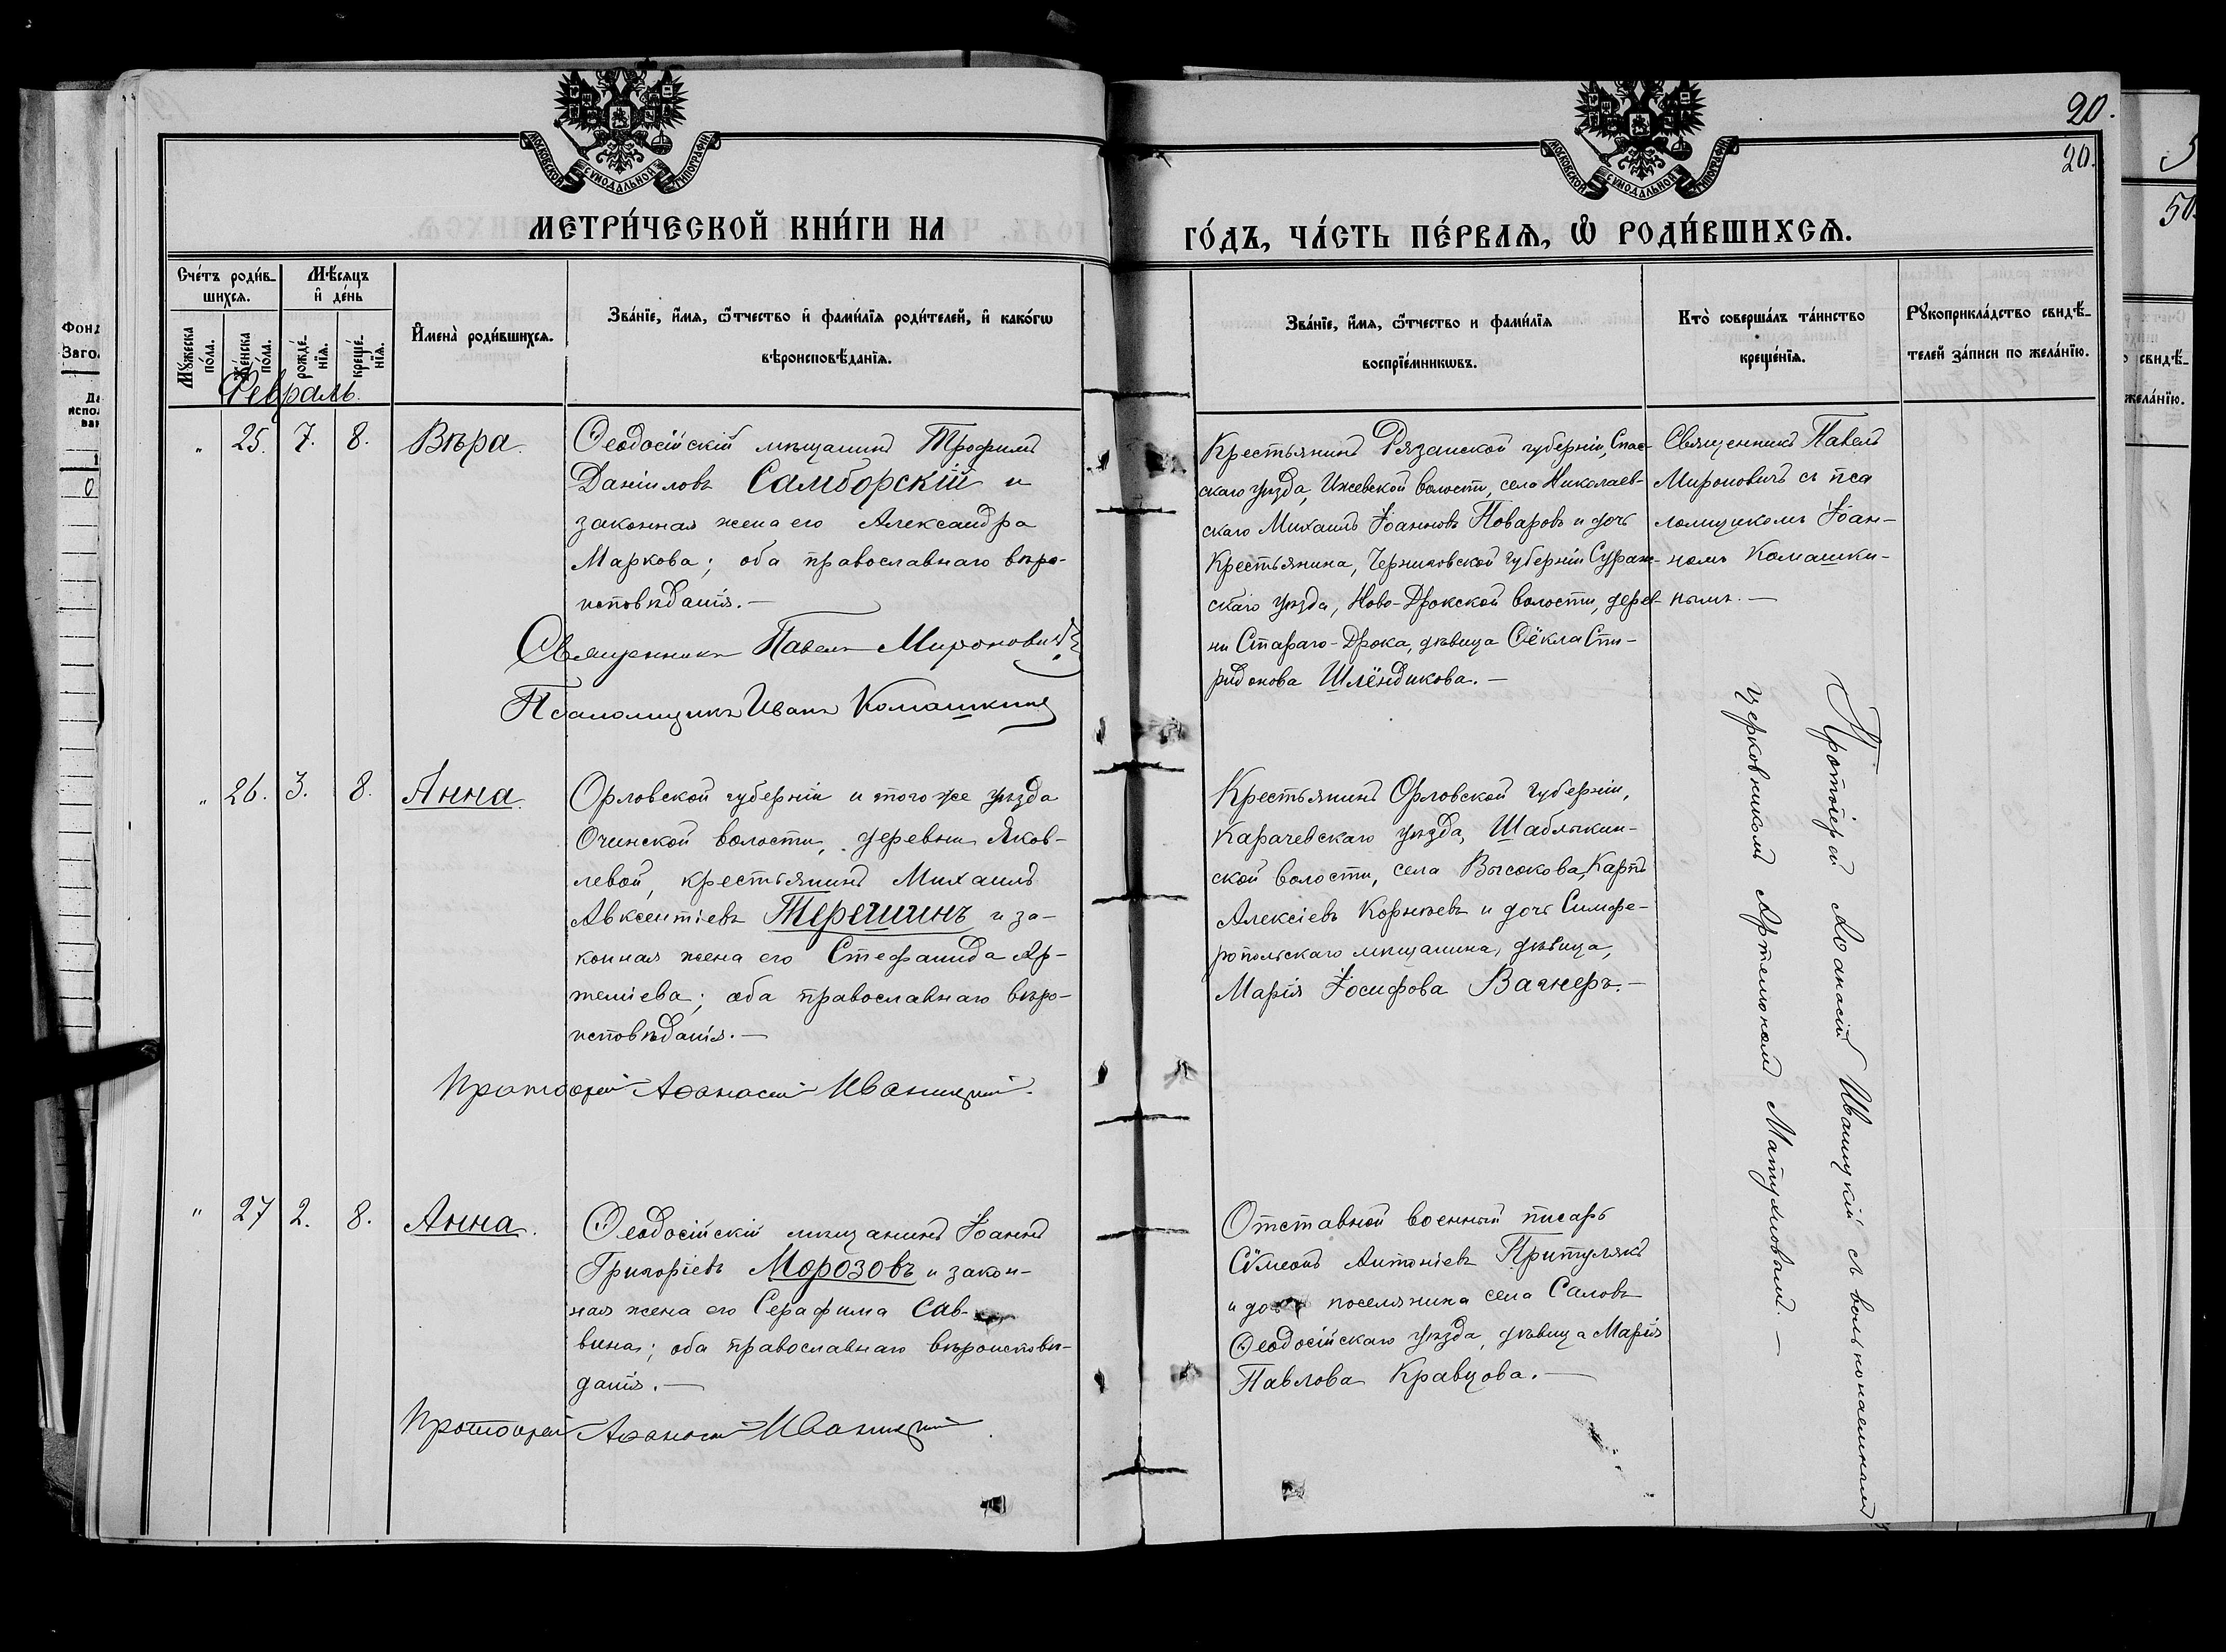 МОСКОВСКОЙ СУНОДАЛЬНОЙ ТИПОГРАФІИ
МЕТРИ́ЧЕСКОЙ КНИ́ГИ НА
Сче́тъ роди́в-
шихся.
Мѣ́сяцъ
и҆ де́нь
Мꙋ́жеска по́ла.
Же́нска по́ла.
рожде́-
нїѧ.
креще́-
нїѧ.
И҆мена̀ роди́вшихсѧ.
Зва́нїе, и҆́мѧ, ѻ҆́тчество и҆ фами́лїѧ роди́телей, и҆ како́гѡ
вѣроисповѣ́данїѧ.
Февраль
" 25. 7. 8. Вѣра.
Ѳеодосійскій мѣщанинъ Трофимъ
Даніиловъ Самборскій и
законная жена его Александра
Маркова; оба православнаго вѣро-
исповѣданія.—
Священникъ Павелъ Мироновичъ
Псаломщикъ Иванъ Комашкинъ
" 26. 3. 8. Анна.
Орловской губерніи и того же уѣзда
Очинской волости, деревни Яков-
левой, крестьянинъ Михаилъ
Авксентіевъ Терешинъ и за-
конная жена его Стефанида Ар-
теміева; оба православнаго вѣро-
исповѣданія.—
Протоіерей Аѳанасій Иваницкій.
" 27 2. 8. Анна.
Ѳеодосійскій мѣщанинъ Іоаннъ
Григоріевъ Морозовъ и закон-
ная жена его Серафима Сав-
вина; оба православнаго вѣроисповѣ-
данія.—
Протоіерей Аѳанасій Иваницкій
20.
20.
МОСКОВСКОЙ СУНОДАЛЬНОЙ ТИПОГРАФІИ
ГО́ДЪ, ЧА́СТЬ ПЕ́РВАЯ, Ѡ҆ РОДИ́ВШИХСЯ.
Зва́нїе, и҆́мѧ, ѻ҆́тчество и фами́лїѧ
воспрїе́мникѡвъ.
Кто̀ соверша́лъ та́инство
креще́нїѧ.
Рꙋкоприкла́дство свидѣ́-
телей за́писи по жела́нїю.
Крестьянинъ Рязанской губерніи, Спас-
скаго уѣзда, Ижевской волости, села Николаев-
скаго Михаилъ Іоанновъ Поваровъ и дочь
Крестьянина, Черниговской губерніи Сураж-
скаго уѣзда, Ново-Дрокской волости, дерев-
ни Стараго-Дрока, дѣвица Ѳёкла Спи-
ридонова Шлёндикова.—
Священникъ Павелъ
Мироновичъ съ пса
ломщикомъ Іоан-
номъ Комашки-
нымъ.—
Крестьянинъ Орловской губерніи,
Карачевскаго уѣзда, Шаблыкин-
ской волости, села Высокова, Карпъ
Алексіевъ Корнѣевъ и дочь Симфе-
ропольскаго мѣщанина, дѣвица,
Марія Іосифова Вагнеръ.—
Отставной военный писарь
Сѵмеонъ Антоніевъ Притулякъ
и дочь поселянина села Саловъ
Ѳеодосійскаго уѣзда, дѣвица Марія
Павлова Кравцова.—
Протоіерей Аѳанасій Иваницкій съ вольнонаемнымъ
церковникомъ Артемономъ Матушовымъ.—
Фонд
Заго
50
свидѣ́-
жела́нїю.